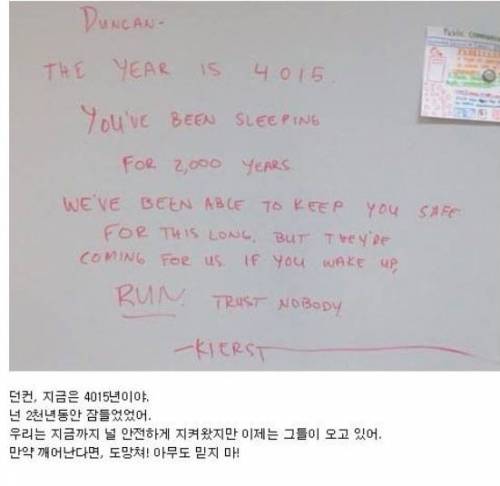 DUNCAN-
THE YEAR IS 4015.
YOU'VE BEEN SLEEPING
FOR 2,000 YEARS.
WE'VE BEEN ABLE TO KEEP YOU SAFE
FOR THIS LONG, BUT THEY'RE
COMING FOR US. IF YOU WAKE UP,
RUN. TRUST NOBODY
-KIERST
던컨, 지금은 4015년이야.
넌 2천년동안 잠들었었어.
우리는 지금까지 널 안전하게 지켜왔지만 이제는 그들이 오고 있어.
만약 깨어난다면, 도망쳐! 아무도 믿지 마!